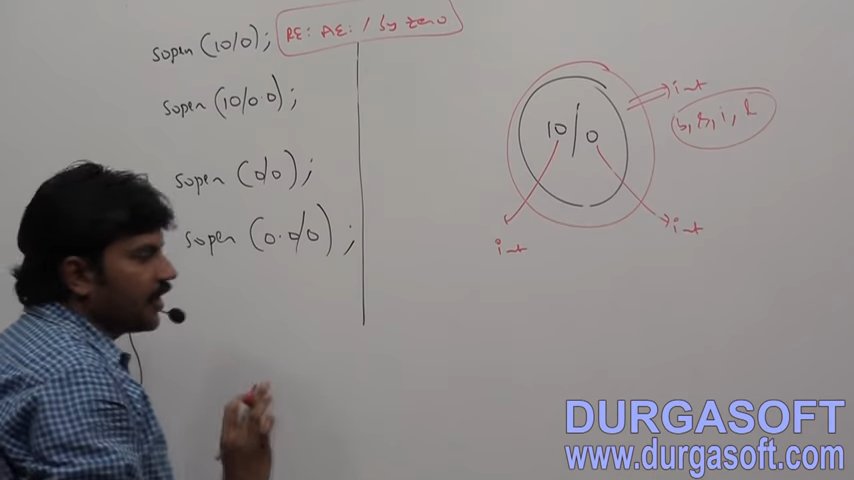 sopln (10/0);
RE: AE: / by zero
sopln (10/0.0);
sopln (0/0);
sopln (0.0/0);
10/0
int
int
int
b, s, i, l
DURGASOFT
www.durgasoft.com